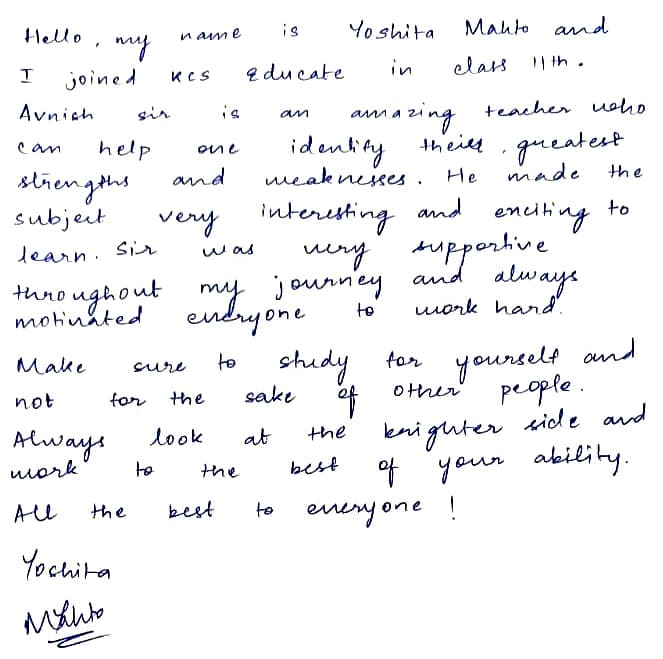 Hello, my name is Yoshita Mahto and
I joined KCS Educate in class 11th.
Avnish sir is an amazing teacher who
can help one identify their, greatest
strengths and weaknesses. He made the
subject very interesting and exciting to
learn. Sir was very supportive
throughout my journey and always
motivated everyone to work hard.
Make sure to study for yourself and
not for the sake of other people.
Always look at the brighter side and
work to the best of your ability.
All the best to everyone!
Yoshita
Mahto